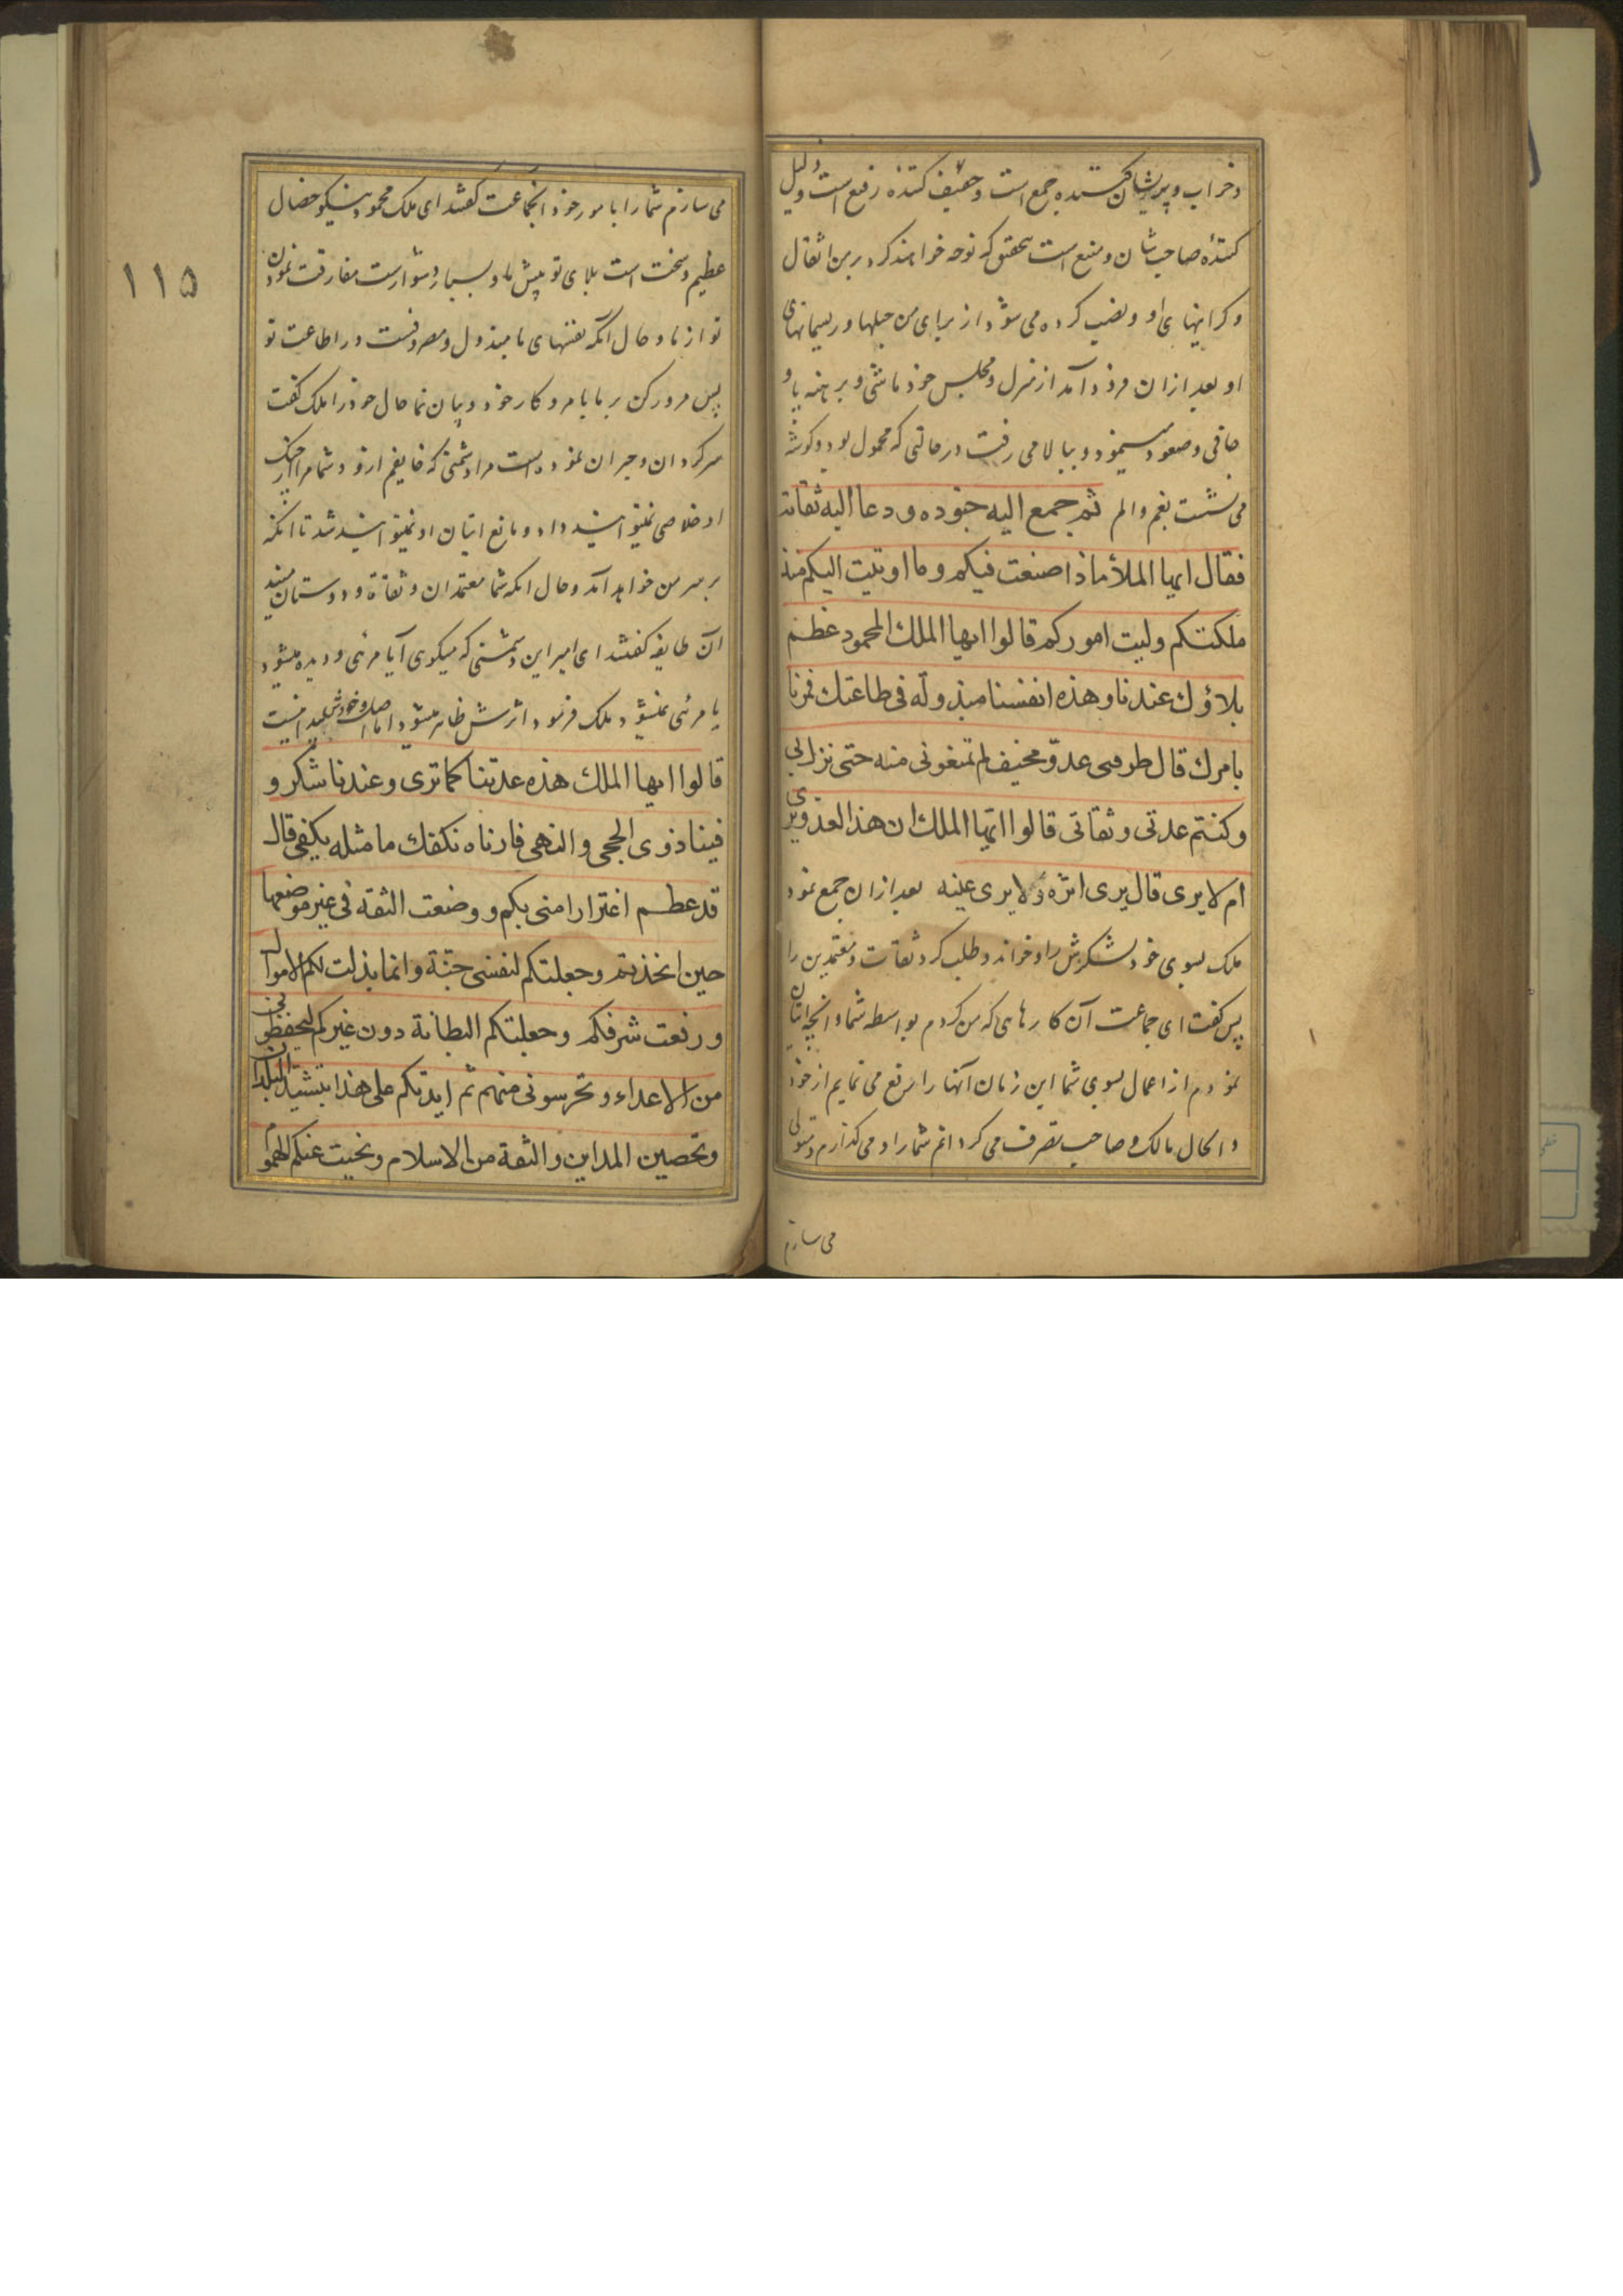 و خراب و پریشان کننده جمع است و حفیف کننده رفیع است و ذلیل
کنندهٔ صاحب شان و منیع است بتحقیق که نوحه خواهند کرد بر من اثقال
و کرانیهای او و نصب کرده می شود از برای من حبلها و ریسمانهای
او بعد ازان فرود آمد از منزل و مجلس خود ماشی و برهنه پا و
حافی و صعود مینمود و ببالا می رفت در حالتی که محمول بود و کوشه
می نشست بغم و الم ثم جمع الیه جنوده و دعا الیه ثقاته
فقال ایها الملأ ماذا صنعت فیکم و ما اوتیت الیکم منذ
ملکتکم و لیت امورکم قالوا ایها الملك المحمود عظم
بلاؤك عندنا و هذه انفسنا مبذولة فی طاعتك فمرنا
بامرك قال طرقنی عدو مخیف لم تمنعونی منه حتی نزل بی
و کنتم عدتی و ثقاتی قالوا ایها الملك ان هذا العدو یری
ام لا یری قال یری اثره و لا یری عینه بعد ازان جمع نمود
ملک بسوی خود لشکرش را و خواند و طلب کرد ثقات و معتمدین را
پس کفت ای جماعت آن کارهایی که من کردم بواسطه شما و انچه اتیان
نمودم از اعمال بسوی شما این زمان آنها را رفع می نمایم از خود
و الحال مالک و صاحب تصرف می کردانم شما را و می کذارم و متولی
می سازم
می سازم شما را بامور خود انجماعت کفتند ای ملک محمود نیکو خصال
عظیم و سخت است بلای تو پیش ما و بسیار دشوارست مفارقت نمودن
تو از ما و حال آنکه نفسهای ما مبذول و مصروفست در اطاعت تو
پس امر کن بر ما بامر و کار خود و بیان نما حال خود را ملک کفت
سرکردان و حیران نموده است مرا دشمنی که خایفم ازو و شما مرا از جنک
او خلاصی نمیتوانید داد و مانع اتیان او نمیتوانید شد تا انکه
بر سر من خواهد آمد و حال انکه شما معتمدان و ثقاة و دوستان منید
آن طایفه کفتند ای امیر این دشمنی که میکوی آیا مرئی و دیده میشود
یا مرئی نمیشود ملک فرمود اثرش ظاهر میشود اما اصل و خودش پیدا نیست
قالوا ایها الملك هذه عدتنا کما تری و عندنا شکر و
فینا ذوی الحجی و النهی فارناه نکفك ما مثله یکفی قال
قد عظم اغترارا منی بکم و وضعت الثقة فی غیر موضعها
حین اتخذتم و جعلتکم لنفسی جنّة و انما بذلت لکم الاموال
و رفعت شرفکم و جعلتکم البطانة دون غیرکم لتحفظونی
من الاعداء و تحرسونی منهم ثم ایدتکم علی هذا بتشیید البلدان
و تحصین المداین و الثقة من الاسلام و نحیت عنکم الهموم
۱۱۵